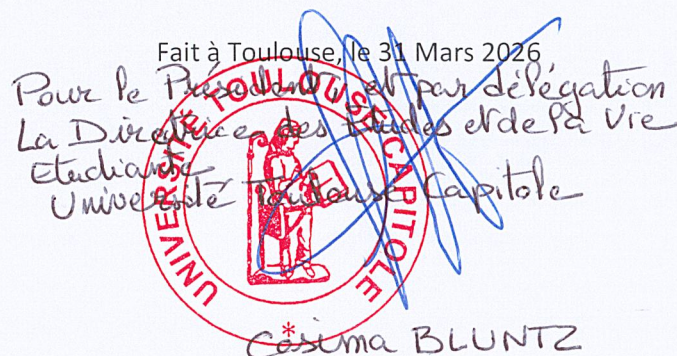 Fait à Toulouse, le 31 Mars 2026
Pour le Président, et par délégation
La Directrice des Etudes et de la Vie
Etudiante
Université Toulouse Capitole
UNIVERSITÉ TOULOUSE CAPITOLE *
Cosima BLUNTZ